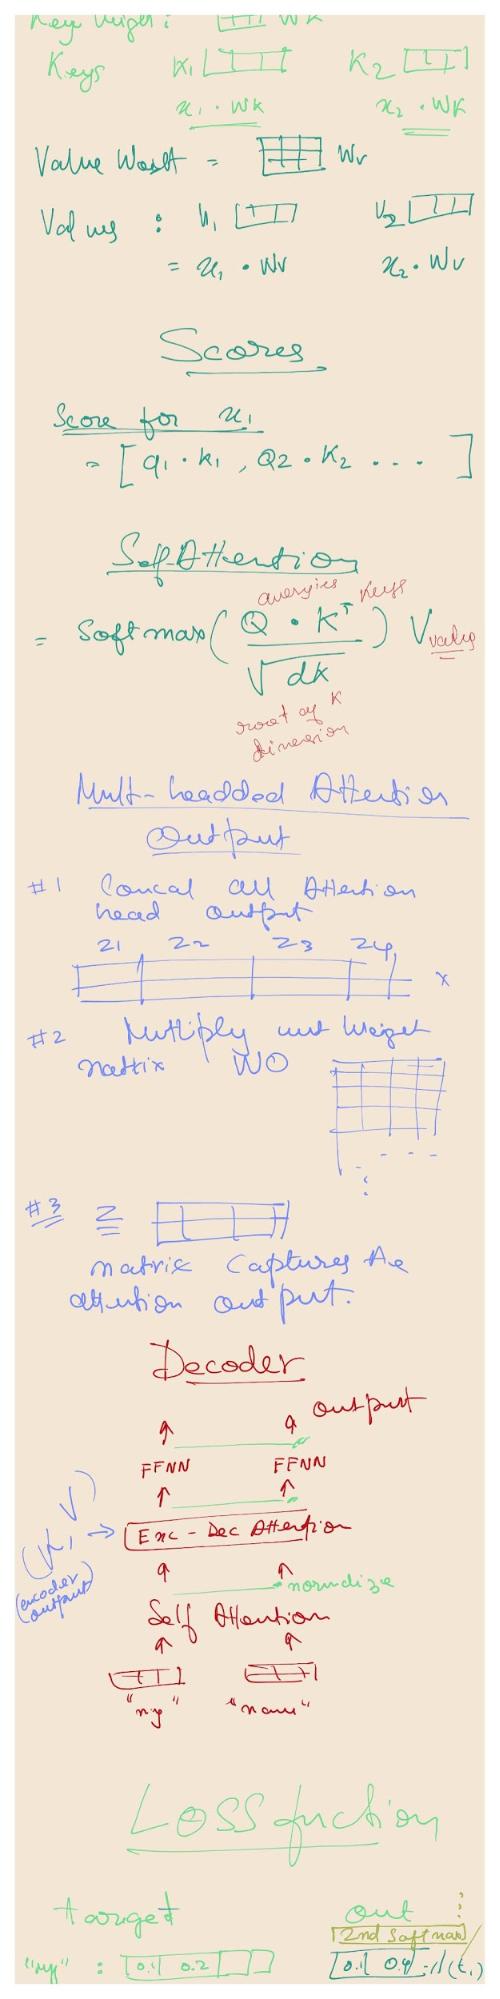 Key Weight : WK
Keys K1 K2
x1 . WK x2 . WK
Value = Wv
Values : V1 V2
= x1 . Wv x2 . Wv
Scores
Score for x1
= [ q1 . k1 , Q2 . K2 . . . . ]
Self-Attention
queries keys
= Softmax ( Q . K^T / √dk ) V value
root of K
dimension
Multi-headded Attention
Output
#1 Concat all Attention
head output
Z1 Z2 Z3 Z4
x
#2 Multiply
matrix WO
#3 Z
matrix captures the
attention output.
Decoder
output
FFNN FFNN
(K, V) → Enc - Dec Attention
(encoder
output)
normalize
Self Attention
"my" "name"
Loss function
target out
2nd Softmax
"my" : 0.1 0.2 0.1 0.4 :d(t1)